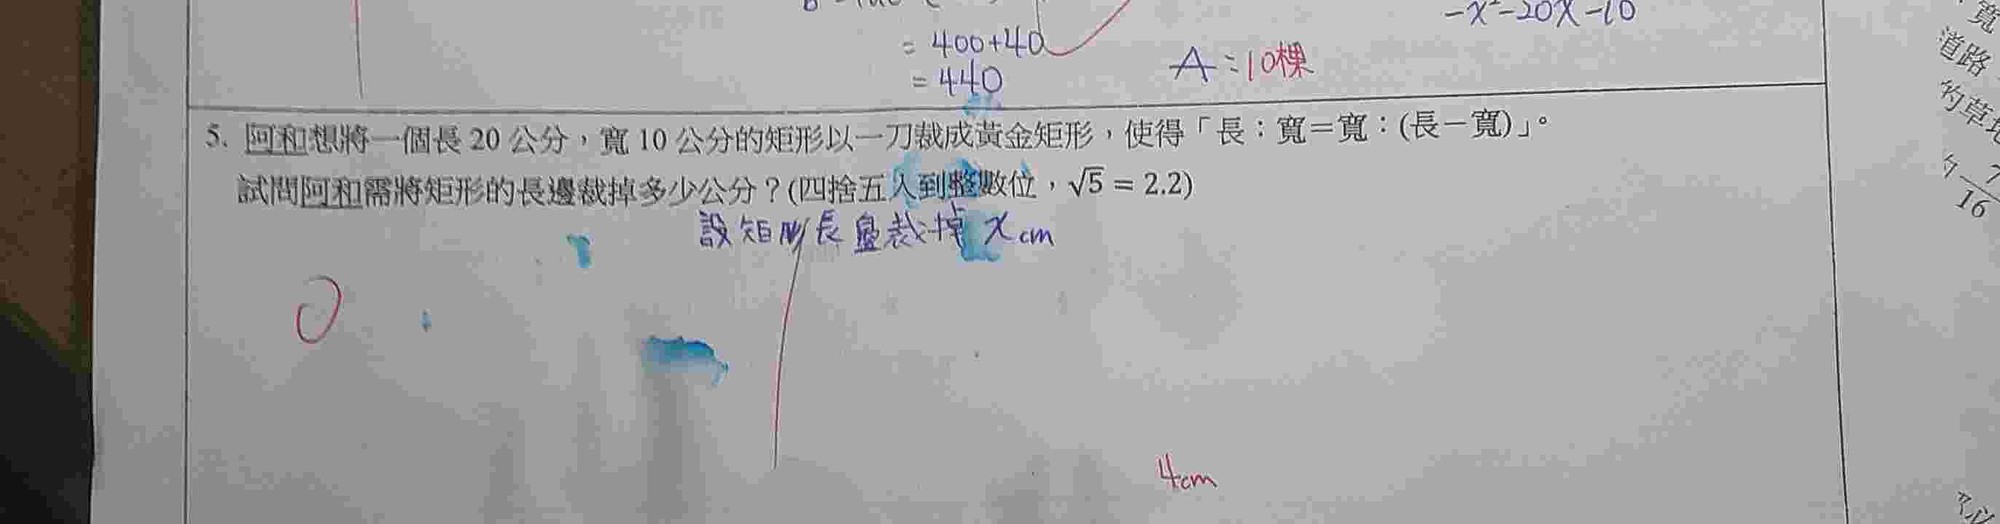 -x²-20x-10
= 400+40
= 440
A:10棵
5. 阿和想將一個長 20 公分，寬 10 公分的矩形以一刀裁成黃金矩形，使得「長：寬＝寬：(長－寬)」。
試問阿和需將矩形的長邊裁掉多少公分？(四捨五入到整數位，√5 = 2.2)
設矩形長邊裁掉 x cm
0
4cm
寬
道路
的草地
7
16